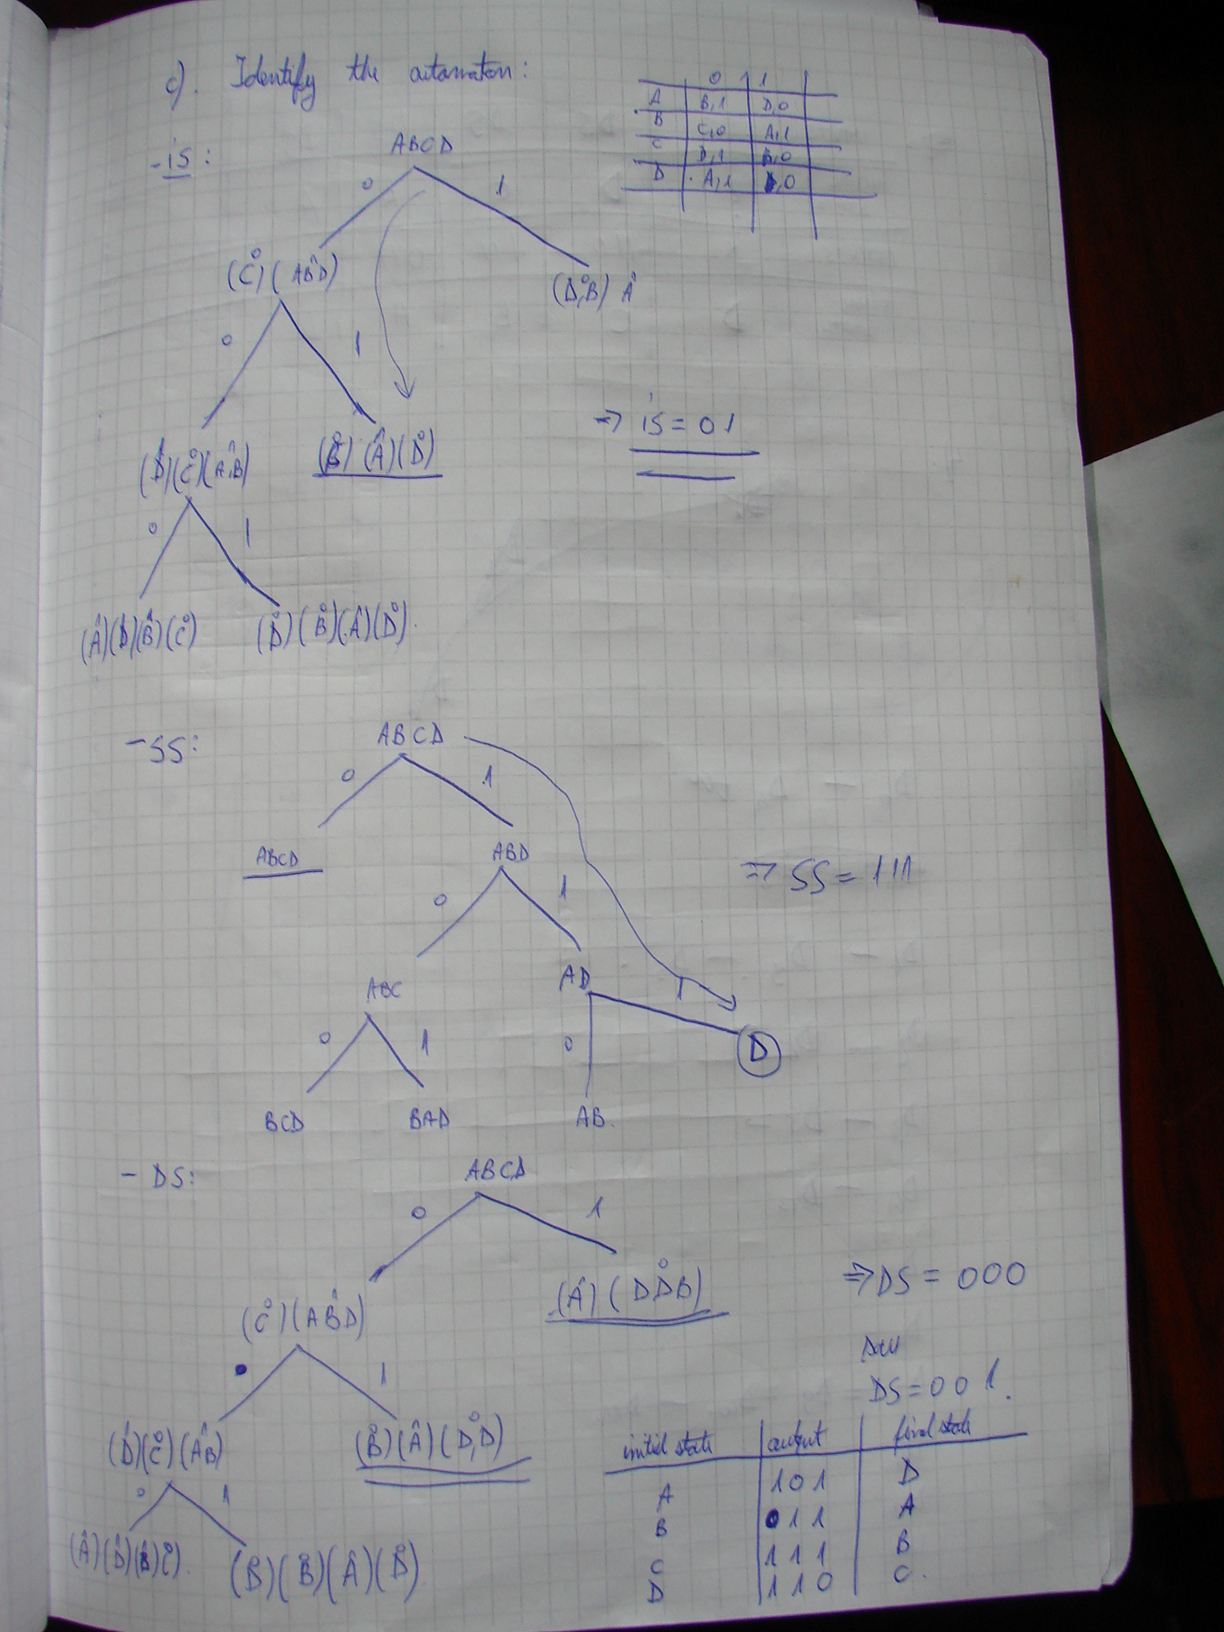 c). Identify the automaton:
0 1
A B,1 D,0
B C,0 A,1
C D,1 B,0
D A,1 D,0
- is:
ABCD
0 1
(C⁰) (ABD¹)
(D,B)⁰ A¹
0 1
(D¹)(C⁰)(A,B¹)
(B⁰) (A¹)(D⁰)
⇒ is = 01
0 1
(A¹)(D¹)(B¹)(C⁰)
(D⁰)(B⁰)(A¹)(D⁰).
- SS:
ABCD
0 1
ABCD
ABD
⇒ SS = 111
0 1
ABC
AD
0 1
0 1
D
BCD
BAD
AB.
- DS:
ABCD
0 1
(C⁰)(ABD¹)
(A¹)(DDB⁰)
⇒ DS = 000
DS = 001.
1
(D¹)(C⁰)(AB¹)
(B⁰)(A¹)(D,D⁰)
0 1
(A¹)(D¹)(B¹)(C⁰).
(B⁰)(A¹)(D⁰)
initial state output final state
A 101 D
B 011 A
C 111 B
D 110 C.